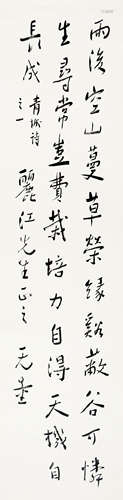 雨後空山蔓草榮緣谿蔽谷可憐
生尋常豈費栽培力自得天機自
長成
青城詩
之一
麗江先生正之
无量